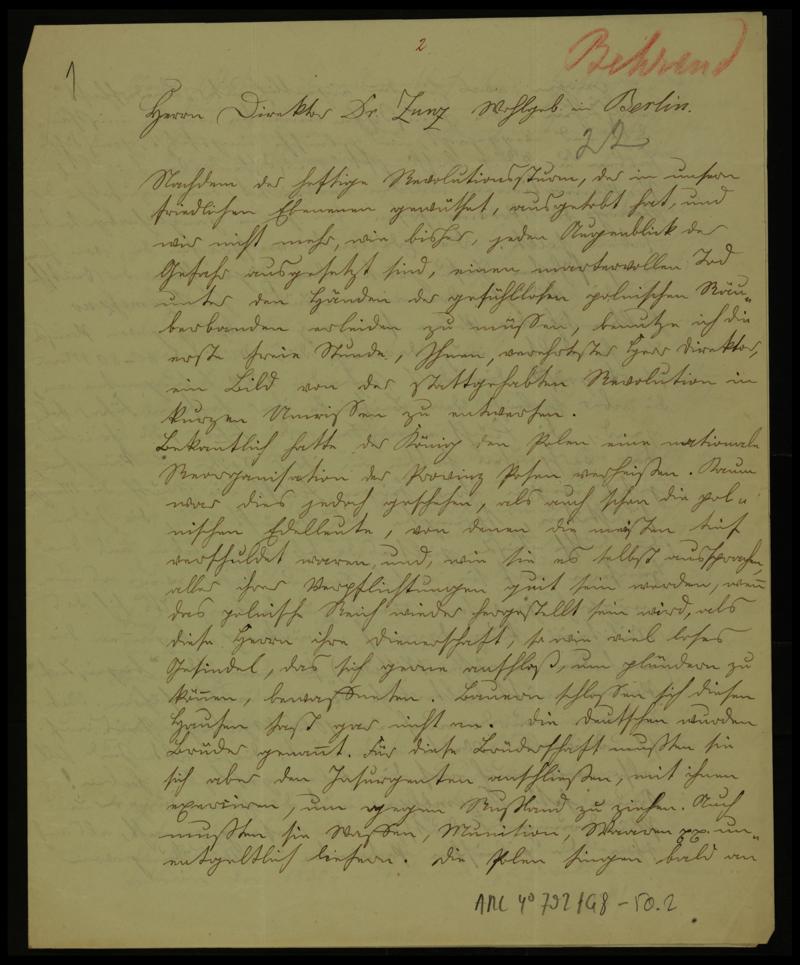 1
2
Behrend
Herrn Direktor Dr. Zunz Wohlgeb. in Berlin.
22
Nachdem der heftige Revolutionssturm, der in unsern
friedlichen Ebenenen gewüthet, ausgetobt hat, und
wir nicht mehr, wie bisher, jeden Augenblick der
Gefahr ausgesetzt sind, einen martervollen Tod
unter den Händen der gefühllosen polnischen Räu-
berbanden erleiden zu müssen, benutze ich die
erste freie Stunde, Ihnen, verehrtester Herr Direktor,
ein Bild von der stattgehabten Revolution in
kurzen Umrissen zu entwerfen.
Bekanntlich hatte der König den Polen eine nationale
Reorganisation der Provinz Posen verheißen. Kaum
war dies jedoch geschehen, als auch schon die pol-
nischen Edelleute, von denen die meisten tief
verschuldet waren, und, wie sie es selbst aussprachen,
aller ihrer Verpflichtungen quit sein werden, wenn
das polnische Reich wieder hergestellt sein wird, als
diese Herrn ihre Dienerschaft, so wie viel loses
Gesindel, das sich gerne anschloß, um plündern zu
können, bewaffneten. Bauern schlossen sich diesen
Haufen fast gar nicht an. Die Deutschen wurden
Brüder genannt. Für diese Brüderschaft mußten sie
sich aber den Insurgenten anschließen, mit ihnen
exerciren, um gegen Rußland zu ziehen. Auch
mußten sie Waffen, Munition, Waaren pp. un-
entgeltlich liefern. Die Polen fingen bald an
ARC 4° 792/G8-50.2